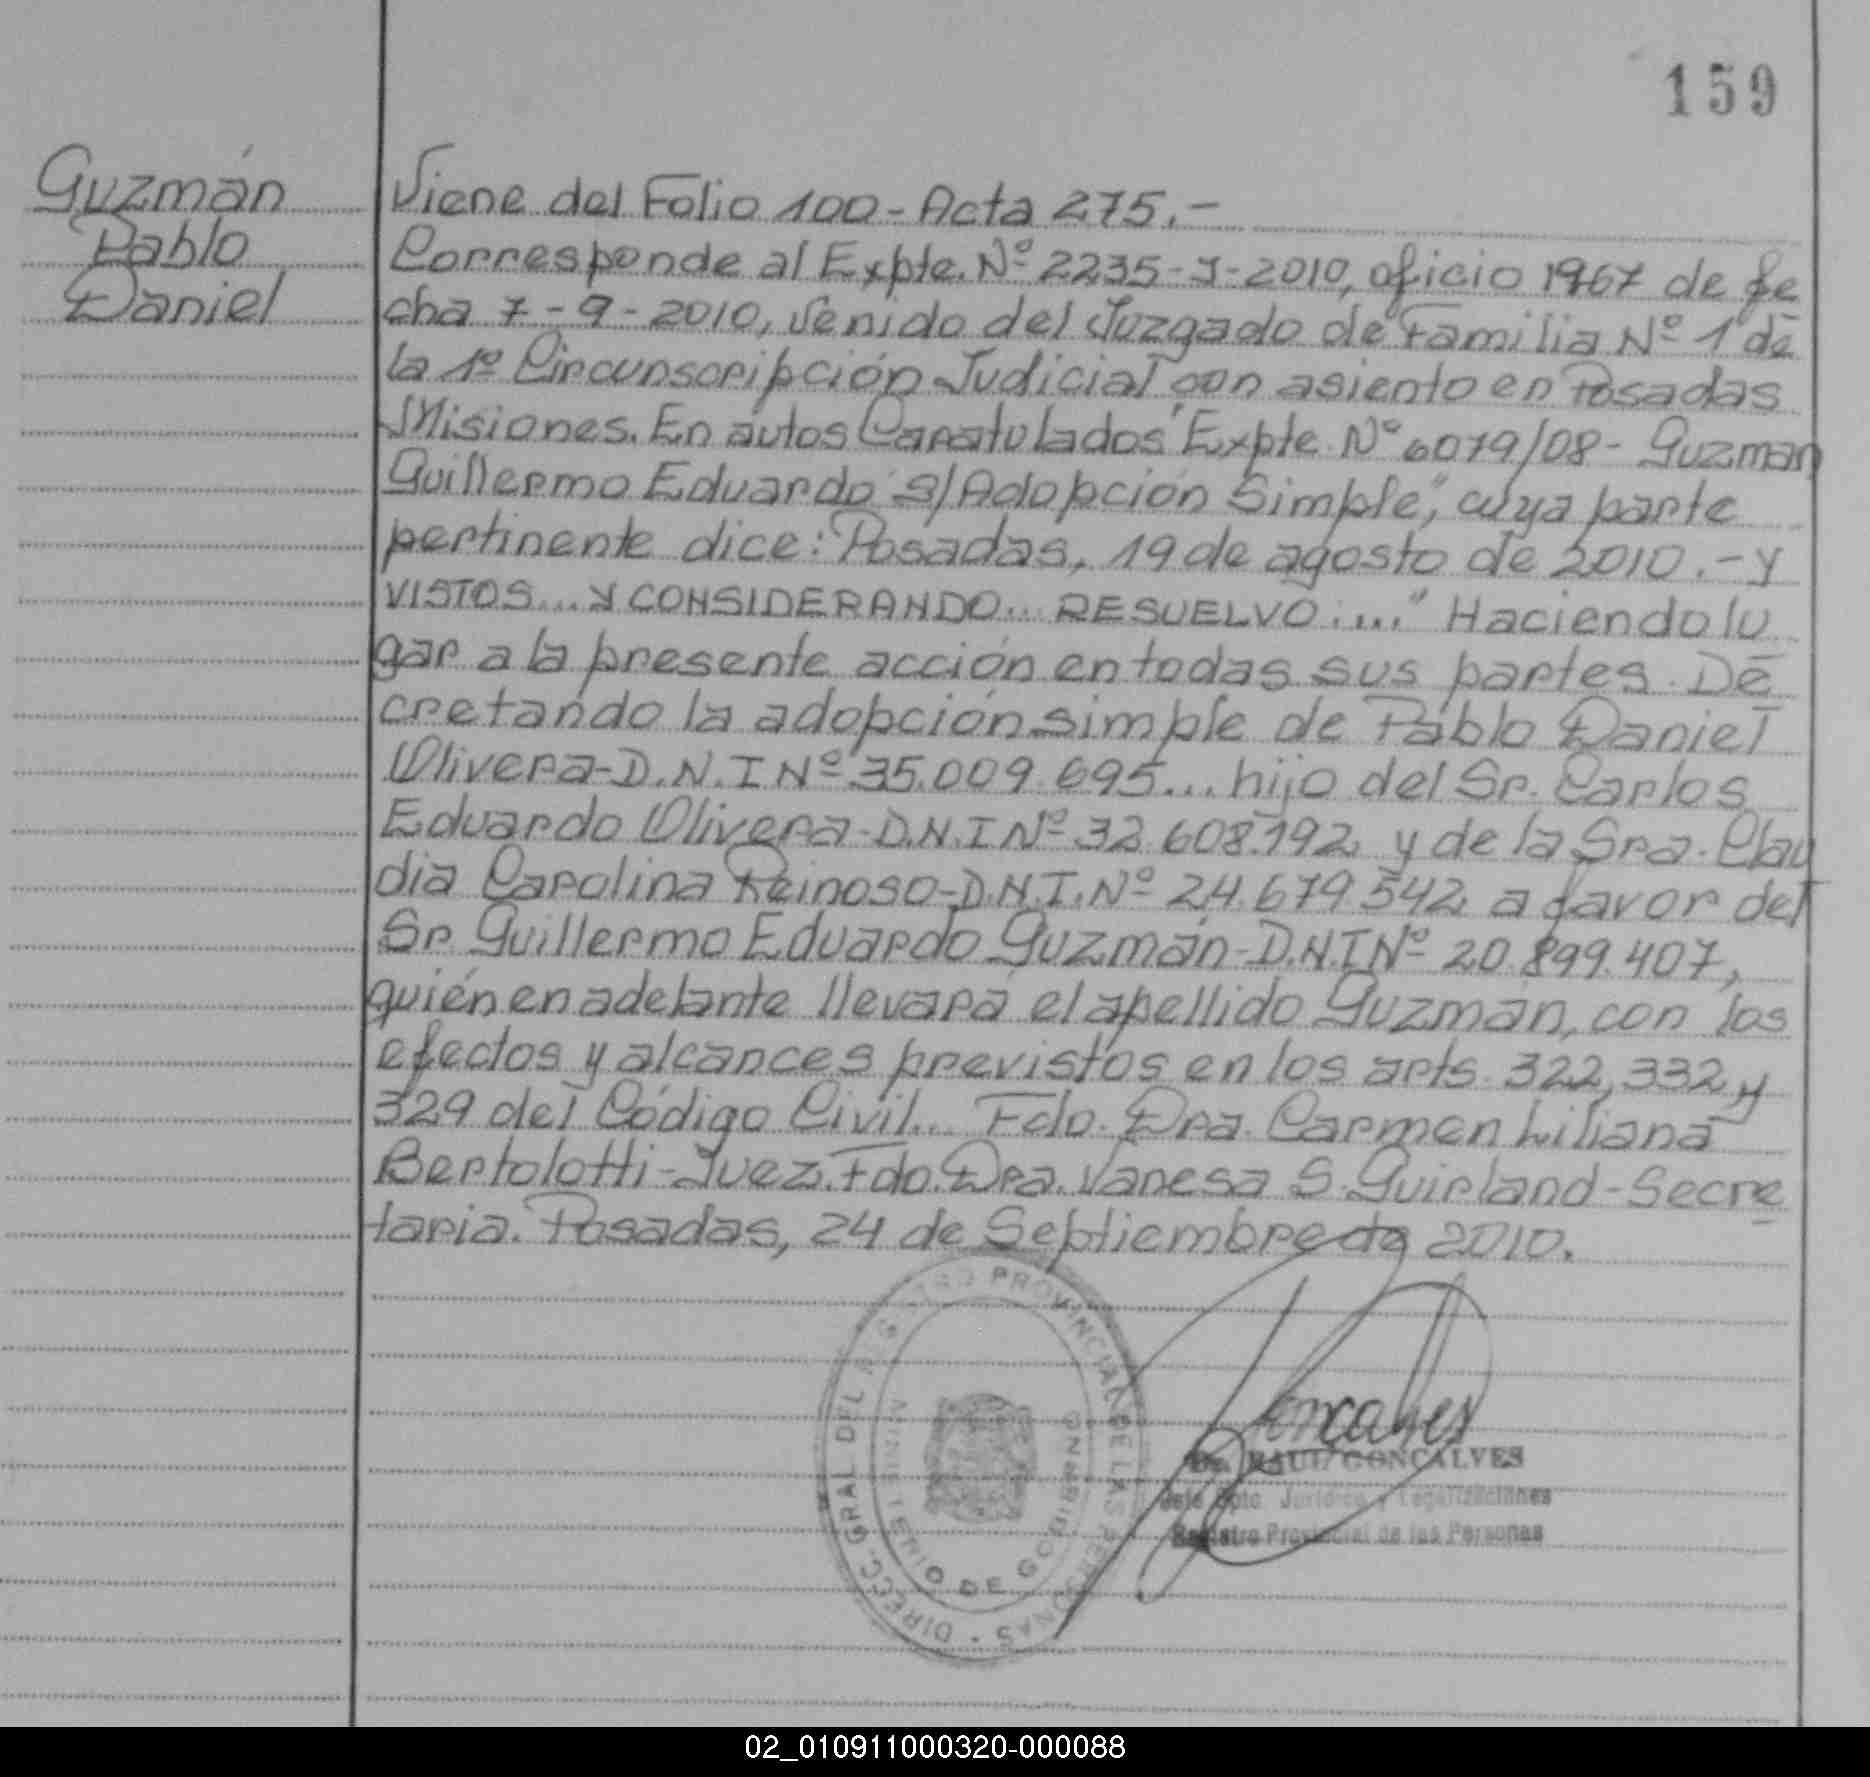 159
Guzmán
Pablo
Daniel
Viene del Folio 100 - Acta 275.-
Corresponde al Expte. Nº 2235-J-2010, oficio 1967 de fe
cha 7-9-2010, venido del Juzgado de Familia Nº 1 de
la 1º Circunscripción Judicial con asiento en Posadas
Misiones. En autos Caratulados "Expte. Nº 6079/08 - Guzman
Guillermo Eduardo S/Adopción Simple", cuya parte
pertinente dice: Posadas, 19 de agosto de 2010.- y
VISTOS... Y CONSIDERANDO... RESUELVO:..." Haciendo lu
gar a la presente acción en todas sus partes. De
cretando la adopción simple de Pablo Daniel
Olivera - D.N.I Nº 35.009.695... hijo del Sr. Carlos
Eduardo Olivera - D.N.I Nº 32.608.192 y de la Sra. Clau
dia Carolina Reinoso - D.N.I. Nº 24.679.542 a favor del
Sr. Guillermo Eduardo Guzmán - D.N.I Nº 20.899.407,
quién en adelante llevará el apellido Guzmán, con los
efectos y alcances previstos en los arts. 322, 332 y
329 del Código Civil... Fdo. Dra. Carmen Liliana
Bertolotti - Juez. Fdo. Dra. Vanesa S. Guirland - Secre
taria. Posadas, 24 de Septiembre de 2010.
DIRECC. GRAL DEL REGISTRO PROVINCIAL DE LAS PERSONAS
MINISTERIO DE GOBIERNO
Goncalves
Dr. RAUL GONCALVES
Jefe Dpto Jurídico y Legalizaciones
Registro Provincial de las Personas
02_010911000320-000088